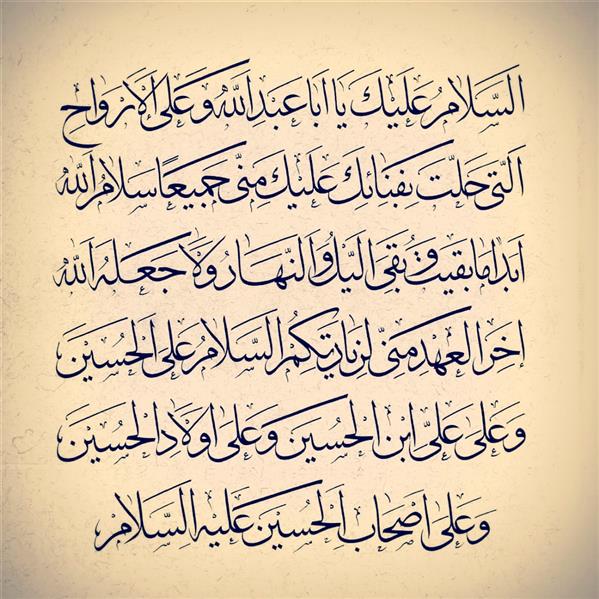 السلام عليك يا ابا عبد الله وعلى الارواح
التى حلت بفنائك عليك منى جميعا سلام الله
ابدا ما بقيت و بقى اليل والنهار ولا جعله الله
اخر العهد منى لزيارتكم السلام على الحسين
وعلى على ابن الحسين وعلى اولاد الحسين
وعلى اصحاب الحسين عليه السلام